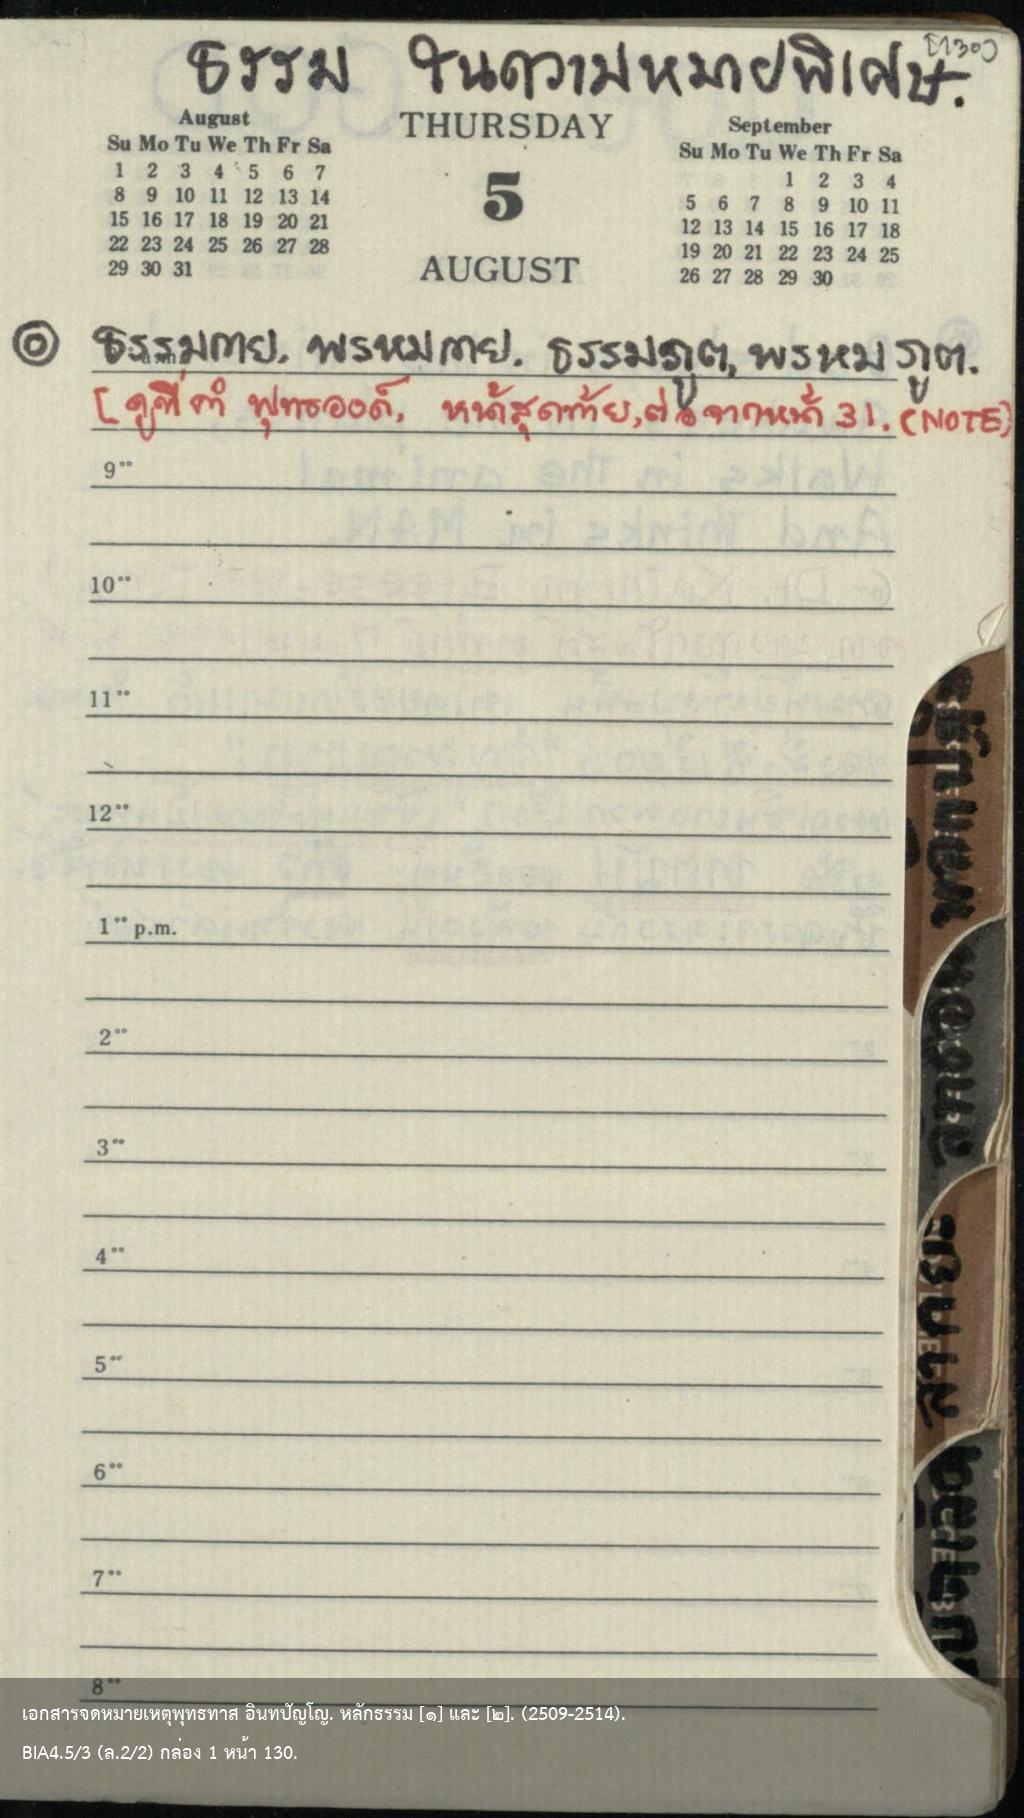 [130]
ธรรม ในความหมายพิเศษ.
August
Su Mo Tu We Th Fr Sa
1 2 3 4 5 6 7
8 9 10 11 12 13 14
15 16 17 18 19 20 21
22 23 24 25 26 27 28
29 30 31
THURSDAY
5
AUGUST
September
Su Mo Tu We Th Fr Sa
1 2 3 4
5 6 7 8 9 10 11
12 13 14 15 16 17 18
19 20 21 22 23 24 25
26 27 28 29 30
ธรรมกาย. พรหมกาย. ธรรมภูต, พรหมภูต.
[ดูที่คำ พุทธองค์, หน้าสุดท้าย, ต่อจากหน้า 31. (NOTE)
9°°
10°°
11°°
12°°
1°° p.m.
2°°
3°°
4°°
5°°
6°°
7°°
8°°
เอกสารจดหมายเหตุพุทธทาส อินทปัญโญ. หลักธรรม [๑] และ [๒]. (2509-2514).
BIA4.5/3 (ล.2/2) กล่อง 1 หน้า 130.